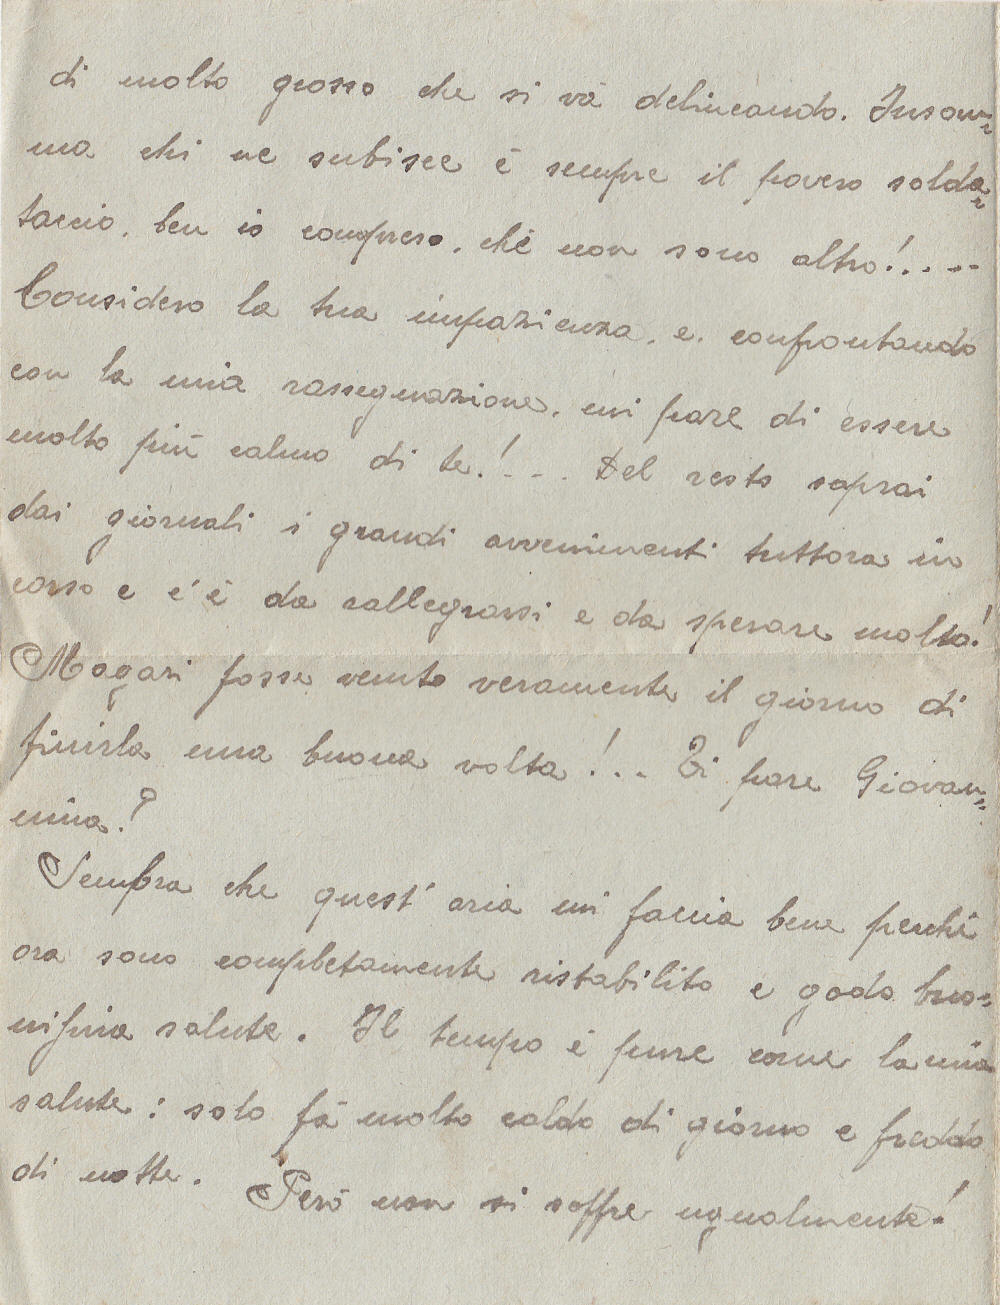 di molto grosso che si và delineando. Insom=
ma chi ne subisce è sempre il povero solda=
taccio, ben io compreso, chè non sono altro!....
Considero la tua impazienza, e, confrontando
con la mia rassegnazione, mi pare di essere
molto più calmo di te!... Del resto saprai
dai giornali i grandi avvenimenti tuttora in
corso e c'è da rallegrarsi e da sperare molto!
Magari fosse venuto veramente il giorno di
finirla una buona volta!... Ti pare Giovan=
nina?
Sembra che quest'aria mi faccia bene perchè
ora sono completamente ristabilito e godo buo=
nissima salute. Il tempo è pure come la mia
salute: solo fà molto caldo di giorno e freddo
di notte. Però non si soffre ugualmente!